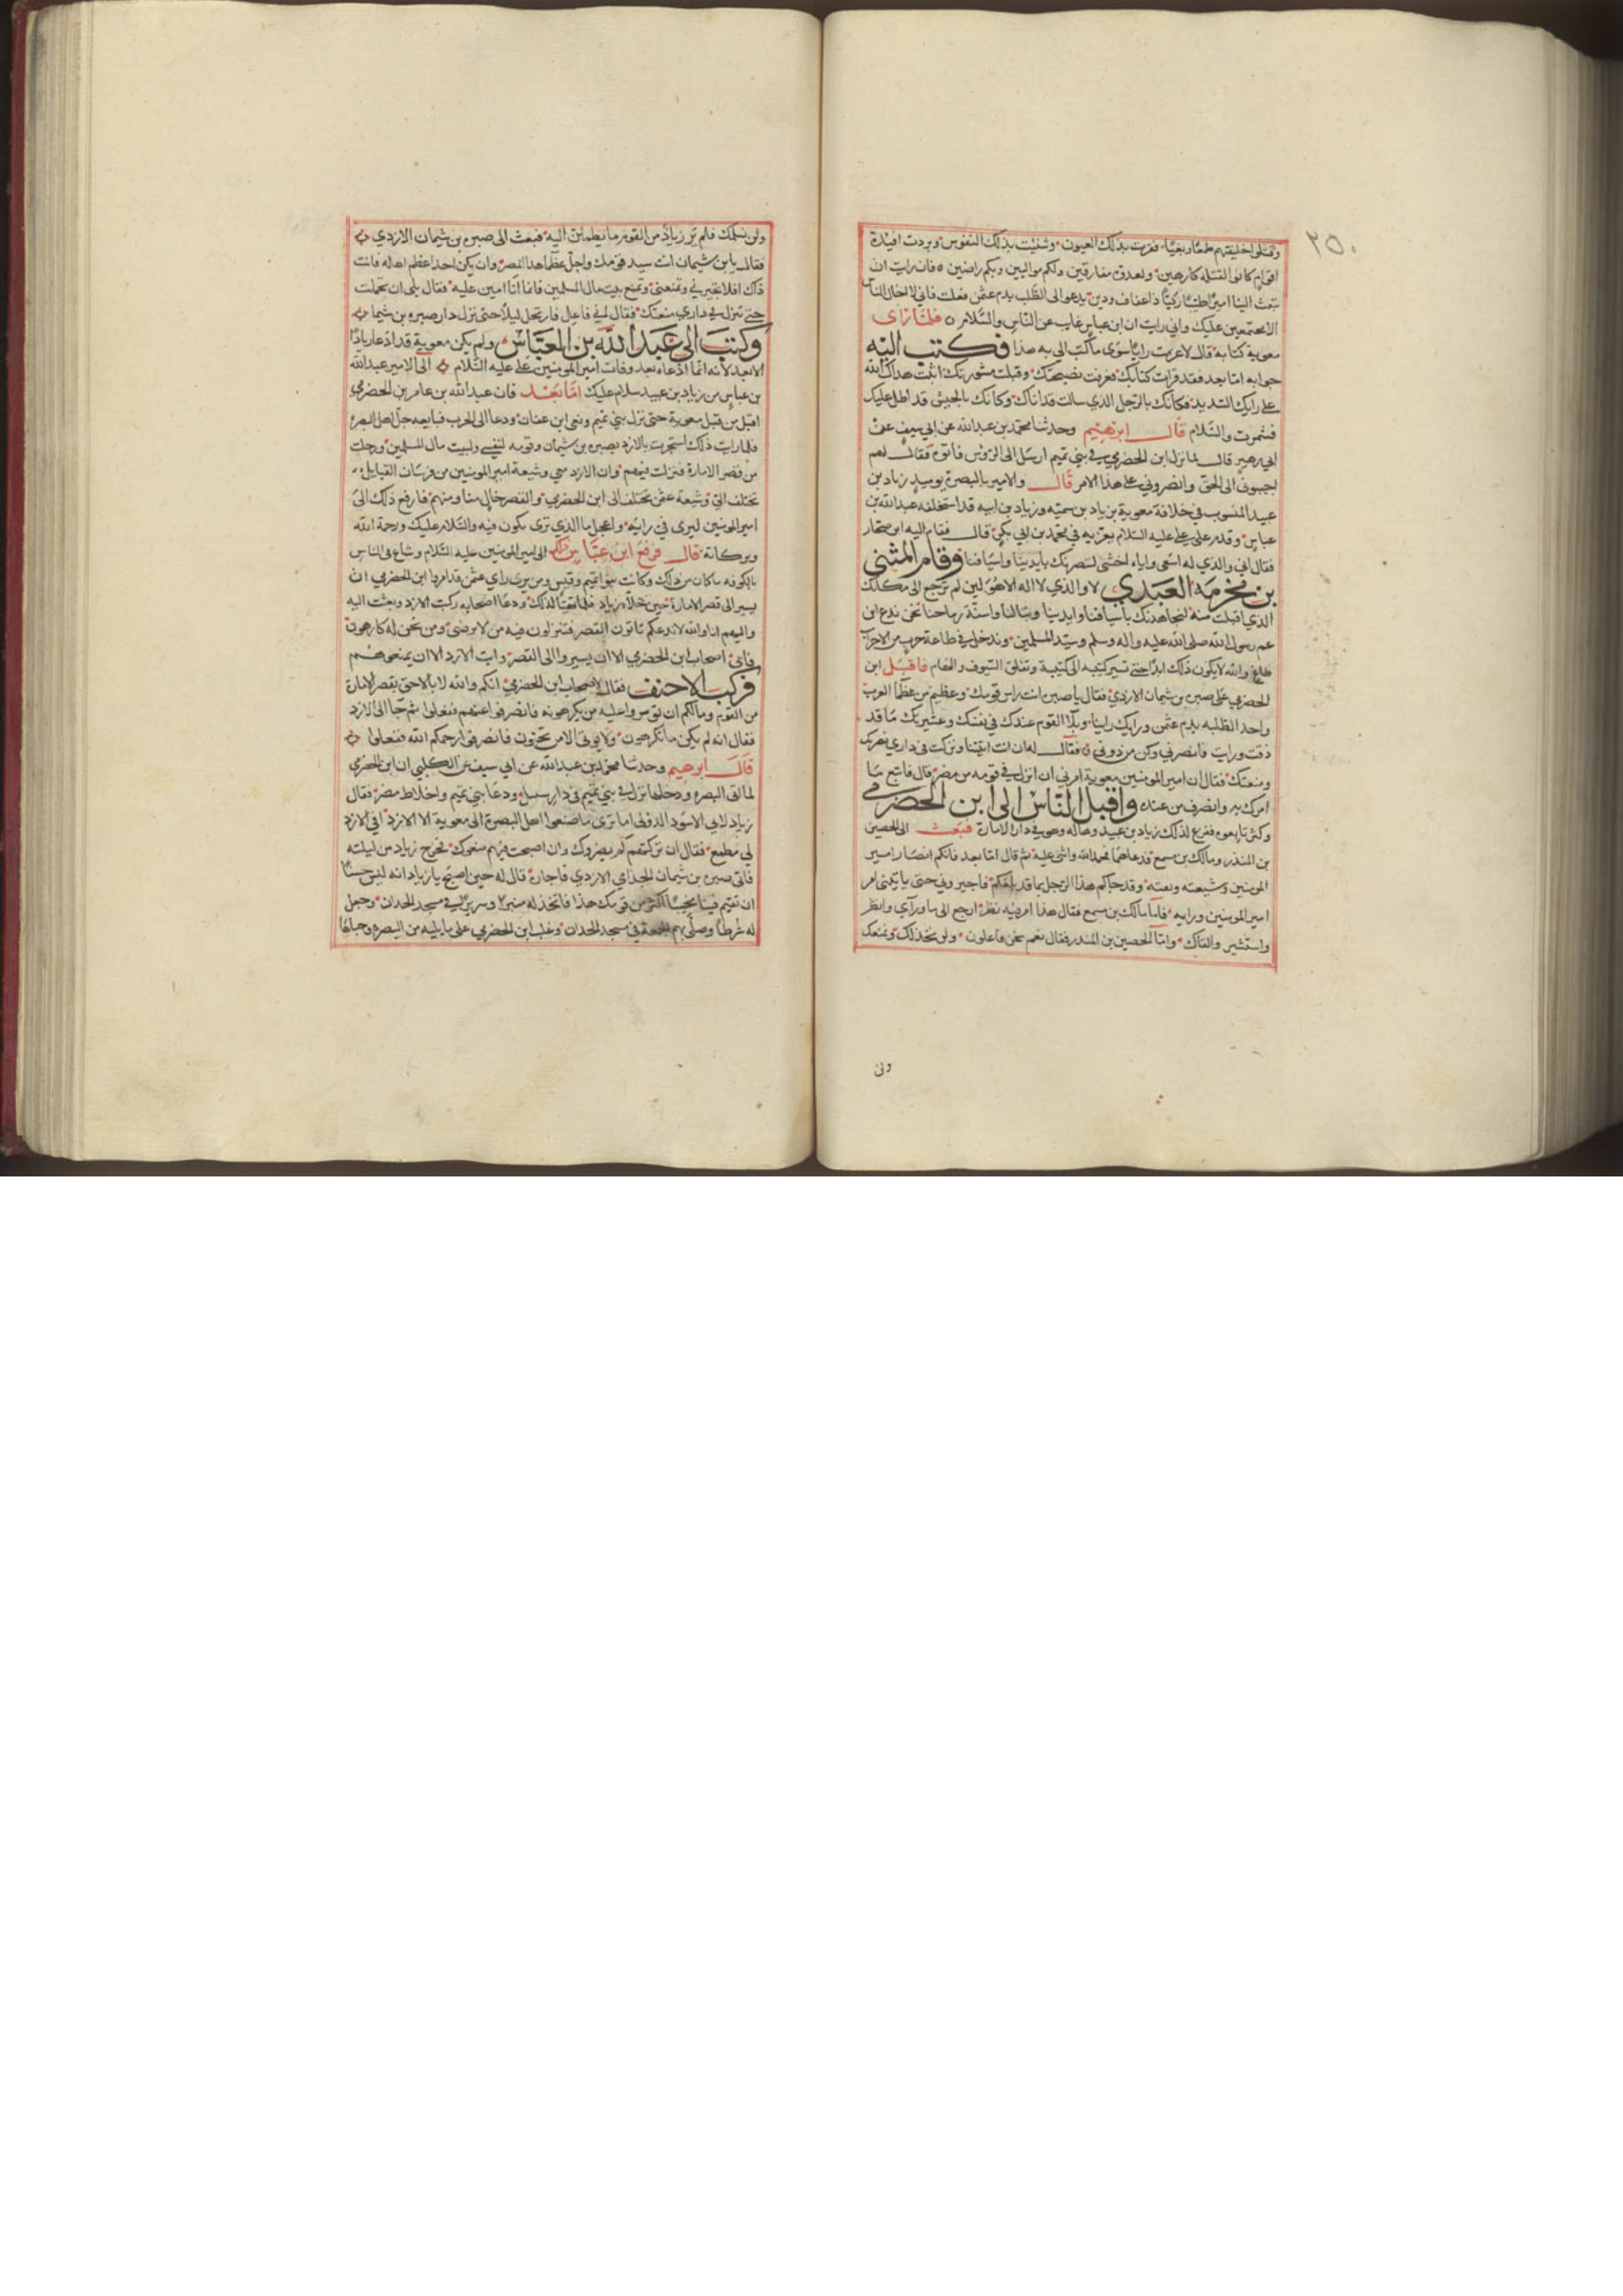 ٢٥٠
وقتلى خليفتهم ظلمًا وبغيًا فقرت بذلك العيون وشفيت بذلك النفوس وبردت افئدة
اقوام كانوا لقتله كارهين ولعدوه مفارقين ولكم موالين وبكم راضين فان رايت ان
تبعث الينا اميرًا طيبًا زكيًا ذا عفاف ودين يدعو الى الطلب بدم عثمن فعلت فاني لا اخال الناس
الا مجتمعين عليك واني رايت ان ابن عباس غايب عن الناس والسلام فلما راى
معوية كتابه قال لا عزمت رايًا سوى ما كتب الي به هذا فكتب اليه
جوابه اما بعد فقد قرات كتابك فعرفت نصيحتك وقبلت مشورتك اثبت هداك الله
على رايك السديد فكانك بالرجل الذي سالت قد اتاك وكانك بالجيش قد اطل عليك
فسررت والسلام قال ابرهيم وحدثنا محمد بن عبدالله عن ابي سيف عن
ابي زهير قال لما نزل ابن الحضرمي في بني تميم ارسل الى الروس فاتوه فقال لهم
اجيبوني الى الحق وانصروني على هذا الامر قال والامير بالبصرة يوميذ زياد بن
عبيد المنسوب في خلافة معوية بزياد بن سميه وزياد بن ابيه قد استخلفه عبدالله بن
عباس وقدم على علي عليه السلام يعزيه في محمد بن ابي بكر قال فقام اليه ابن صحار
فقال اي والذي له اسعى واياه اخشى لننصرنك بايدينا واسيافنا وقام المثنى
بن مخرمه العبدي لا والذي لا اله الا هو لين لم ترجع الى مكانك
الذي اقبلت منه لنجاهدنك باسيافنا وايدينا ونبالنا واسنة رماحنا نحن ندع ابن
عم رسول الله صلى الله عليه واله وسلم وسيد المسلمين وندخل في طاعة حزب من الاحزاب
طاغ والله لا يكون ذلك ابدًا حتى نسير كتيبه الى كتيبة ونفلق السيوف والهام فاقبل ابن
الحضرمي على صبره بن شيمان الازدي فقال يا صبره انت راس قومك وعظيم من عظما العرب
واحد الطلبه بدم عثمن ورايك راينا وبلا القوم عندك في نفسك وعشيرتك ما قد
ذقت ورايت فانصرني وكن من دوني فقال له ان انت اتيتنا ونزلت في داري نصرتك
ومنعتك فقال ان امير المومنين معوية امرني ان انزل في قومه من مضر قال فاتبع ما
امرك به وانصرف من عنده واقبل الناس الى ابن الحضرمي
وكثر تابعوه ففزع لذلك زياد بن عبيد وهاله وهو في دار الامارة فبعث الى الحصين
بن المنذر ومالك بن مسمع فدعاهما فحمد الله واثنى عليه ثم قال اما بعد فانكم انصار امير
المومنين وشيعته وثقته وقد جاكم هذا الرجل بما قد بلغكم فاجيروني حتى ياتيني امر
امير المومنين ورايه فاما مالك بن مسمع فقال هذا امر فيه نظر ارجع الى ما وراي وانظر
واستشير والقاك واما الحصين بن المنذر فقال نعم نحن فاعلون ولن نخذلك ونمنعك
ولن
ولن نسلمك فلم ير زياد من القوم ما يطمئن اليه فبعث الى صبره بن شيمان الازدي
فقال يابن شيمان انت سيد قومك واجل عظما هذا المصر وان يكن احد اعظم اهاله فانت
ذاك افلا تجيرني وتمنعني وتمنع بيت مال المسلمين فانما انا امين عليه فقال بلى ان تحملت
حتى تنزل في داري منعتك فقال اني فاعل فارتحل ليلًا حتى نزل دار صبره بن شيما
وكتب الى عبد الله بن العباس ولم يكن معوية قد ادعا زيادًا
الا بعد لانه انما ادعاه بعد وفات امير المومنين علي عليه السلام الى الامير عبدالله
بن عباس من زياد بن عبيد سلام عليك اما بعد فان عبدالله بن عامر بن الحضرمي
اقبل من قبل معوية حتى نزل بني تميم ونعى ابن عفان ودعا الى الحرب فبايعه جل اهل البصره
فلما رايت ذلك استجرت بالازد بصبره بن شيمان وقومه لنفسي ولبيت مال المسلمين ورحلت
من قصر الامارة فنزلت فيهم وان الازد معي وشيعة امير المومنين من فرسان القبايل
تختلف الي وشيعة عثمن تختلف الى ابن الحضرمي والقصر خال منا ومنهم فارفع ذلك الى
امير المومنين ليرى في رايه واعجل ما الذي ترى يكون فيه والسلام عليك ورحمة الله
وبركاته قال فرفع ابن عباس ذلك الى امير المومنين عليه السلام وشاع في الناس
بالكوفه ما كان من ذلك وكانت بنو تميم وقيس ومن يرى راي عثمن قد امروا ابن الحضرمي ان
يسير الى قصر الامارة حين خلاه زياد فلما تهيا لذلك ودعا اصحابه ركبت الازد وبعثت اليه
واليهم انا والله لا ندعكم تاتون القصر فتنزلون فيه من لا نرضى ومن نحن له كارهون
فابى اصحاب ابن الحضرمي الا ان يسيروا الى القصر وابت الازد الا ان يمنعوهم
فركب الاحنف فقال لاصحاب ابن الحضرمي انكم والله لا بالاحق بقصر الامارة
من القوم ومالكم ان توموا عليه من يكرهونه فانصرفوا عنهم ففعلوا ثم جا الى الازد
فقال انه لم يكن ما تكرهون ولا يوتى الا من تحبون فانصرفوا رحمكم الله ففعلوا
قال ابرهيم وحدثنا محمد بن عبدالله عن ابي سيف عن الكلبي ان ابن الحضرمي
لما اتى البصره ودخلها نزل في بني تميم في دار سنبل ودعا بني تميم واخلاط مضر فقال
زياد لابي الاسود الدولي اما ترى ما صنعوا اهل البصرة الى معوية الا الازد افي الازد
لي مطمع فقال ان تركتهم لم ينصروك وان اصبحت فيهم منعوك فخرج زياد من ليلته
فاتى صبره بن شيمان الحداني الازدي فاجاره قال له حين اصبح يا زياد انه ليس حسنًا
ان تقيم فينا مختبئًا اكثر من يومك هذا فاتخذ له منبرًا وسريرًا في مسجد الحدان وجعل
له شرطًا وصلى بهم الجمعة في مسجد الحدان وغلب ابن الحضرمي على ما يليه من البصره وجباها